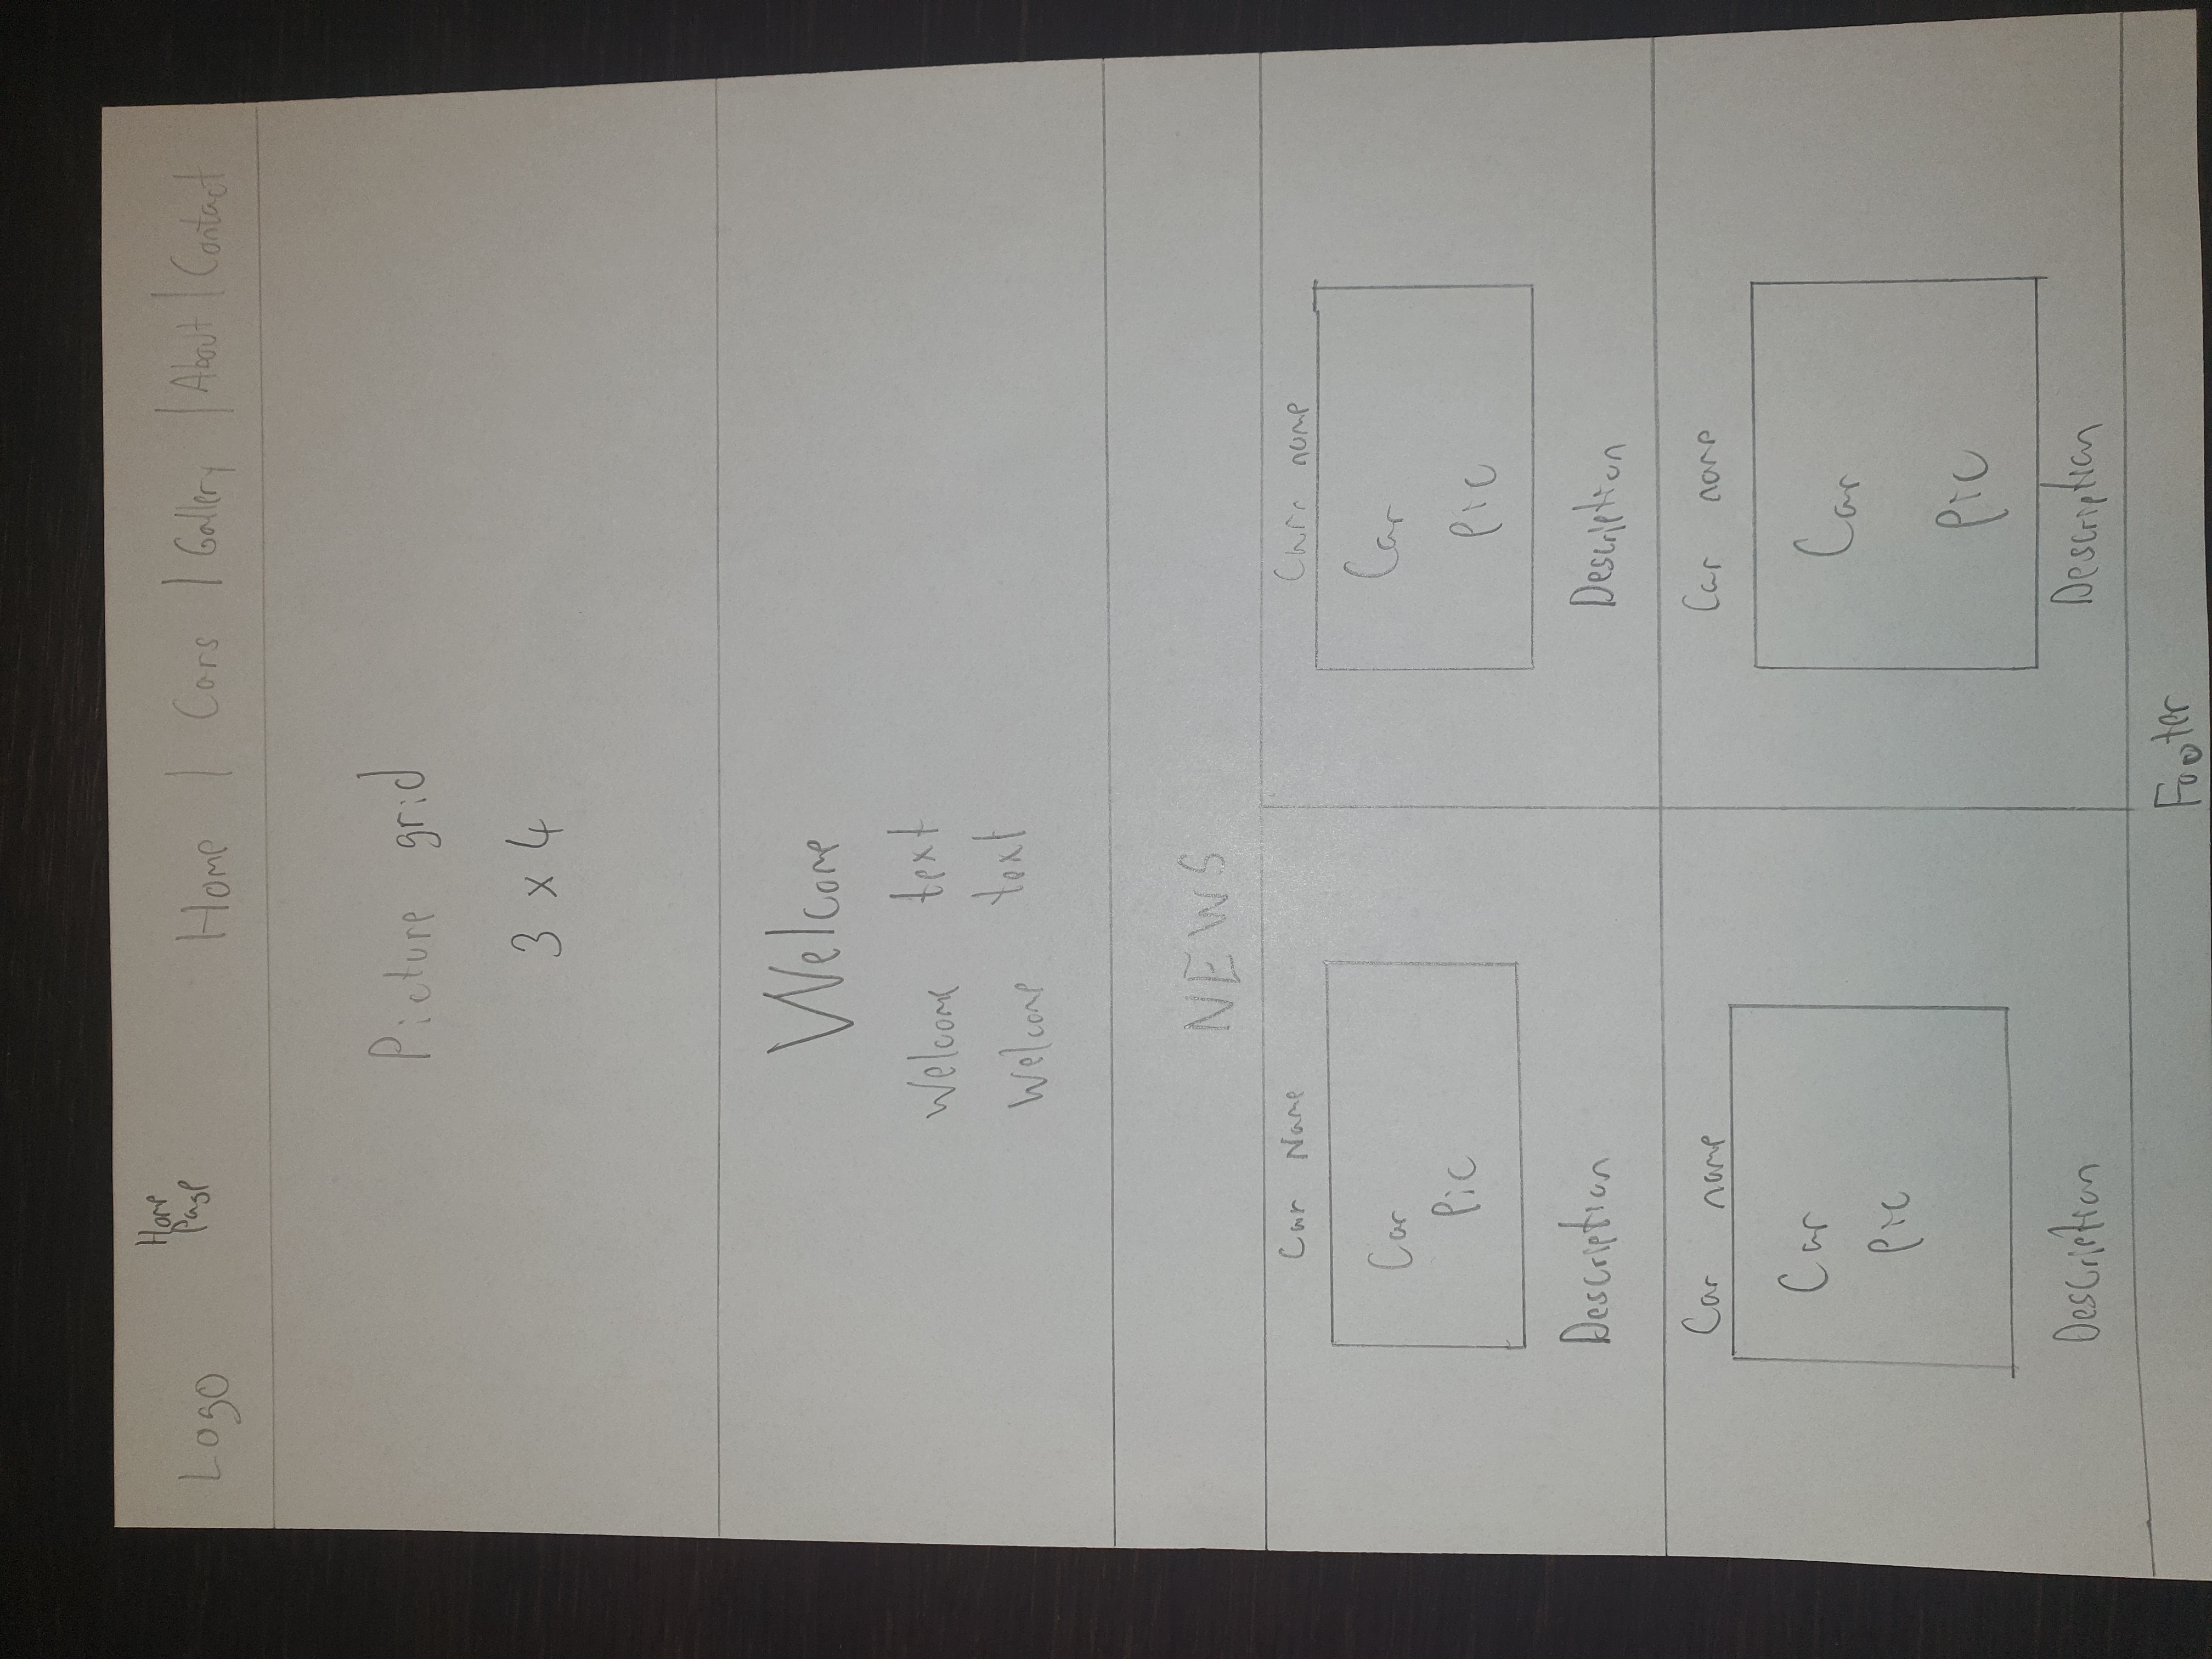 Home
Page
Logo
Home | Cars | Gallery | About | Contact
Picture grid
3 x 4
Welcome
Welcome text
Welcome text
NEWS
Car Name
Car
Pic
Description
Carr name
Car
Pic
Description
Car name
Car
Pic
Description
Car name
Car
Pic
Description
Footer